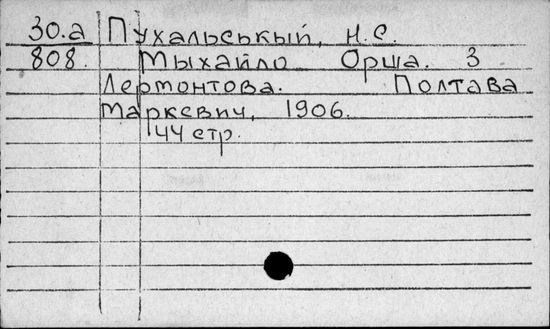 30.а Пухальськый, Н.С.
808. Мыхайло Орша. З
Лермонтова. Полтава
Маркевич, 1906.
44 стр.